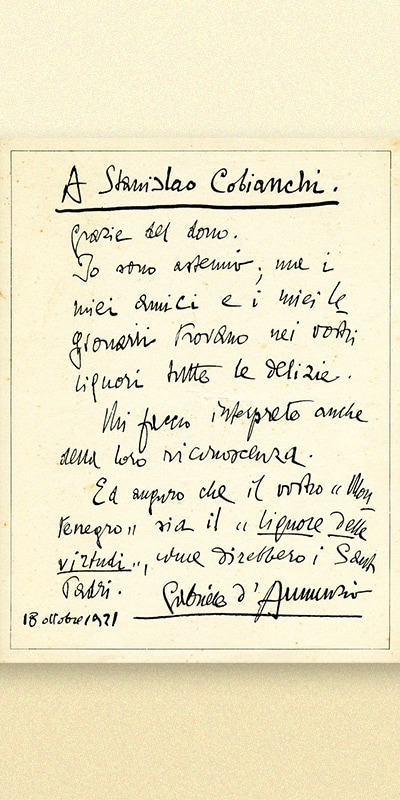 A Stanislao Cobianchi.
Grazie del dono.
Io sono astemio; ma i
miei amici e i miei le
gionarii trovano nei vostri
liquori tutte le delizie.
Mi faccio interprete anche
della loro riconoscenza.
Ed auguro che il vostro "Mon
tenegro" sia il "liquore delle
virtudi", come direbbero i Santi
Padri.
Gabriele d'Annunzio
18 ottobre 1921